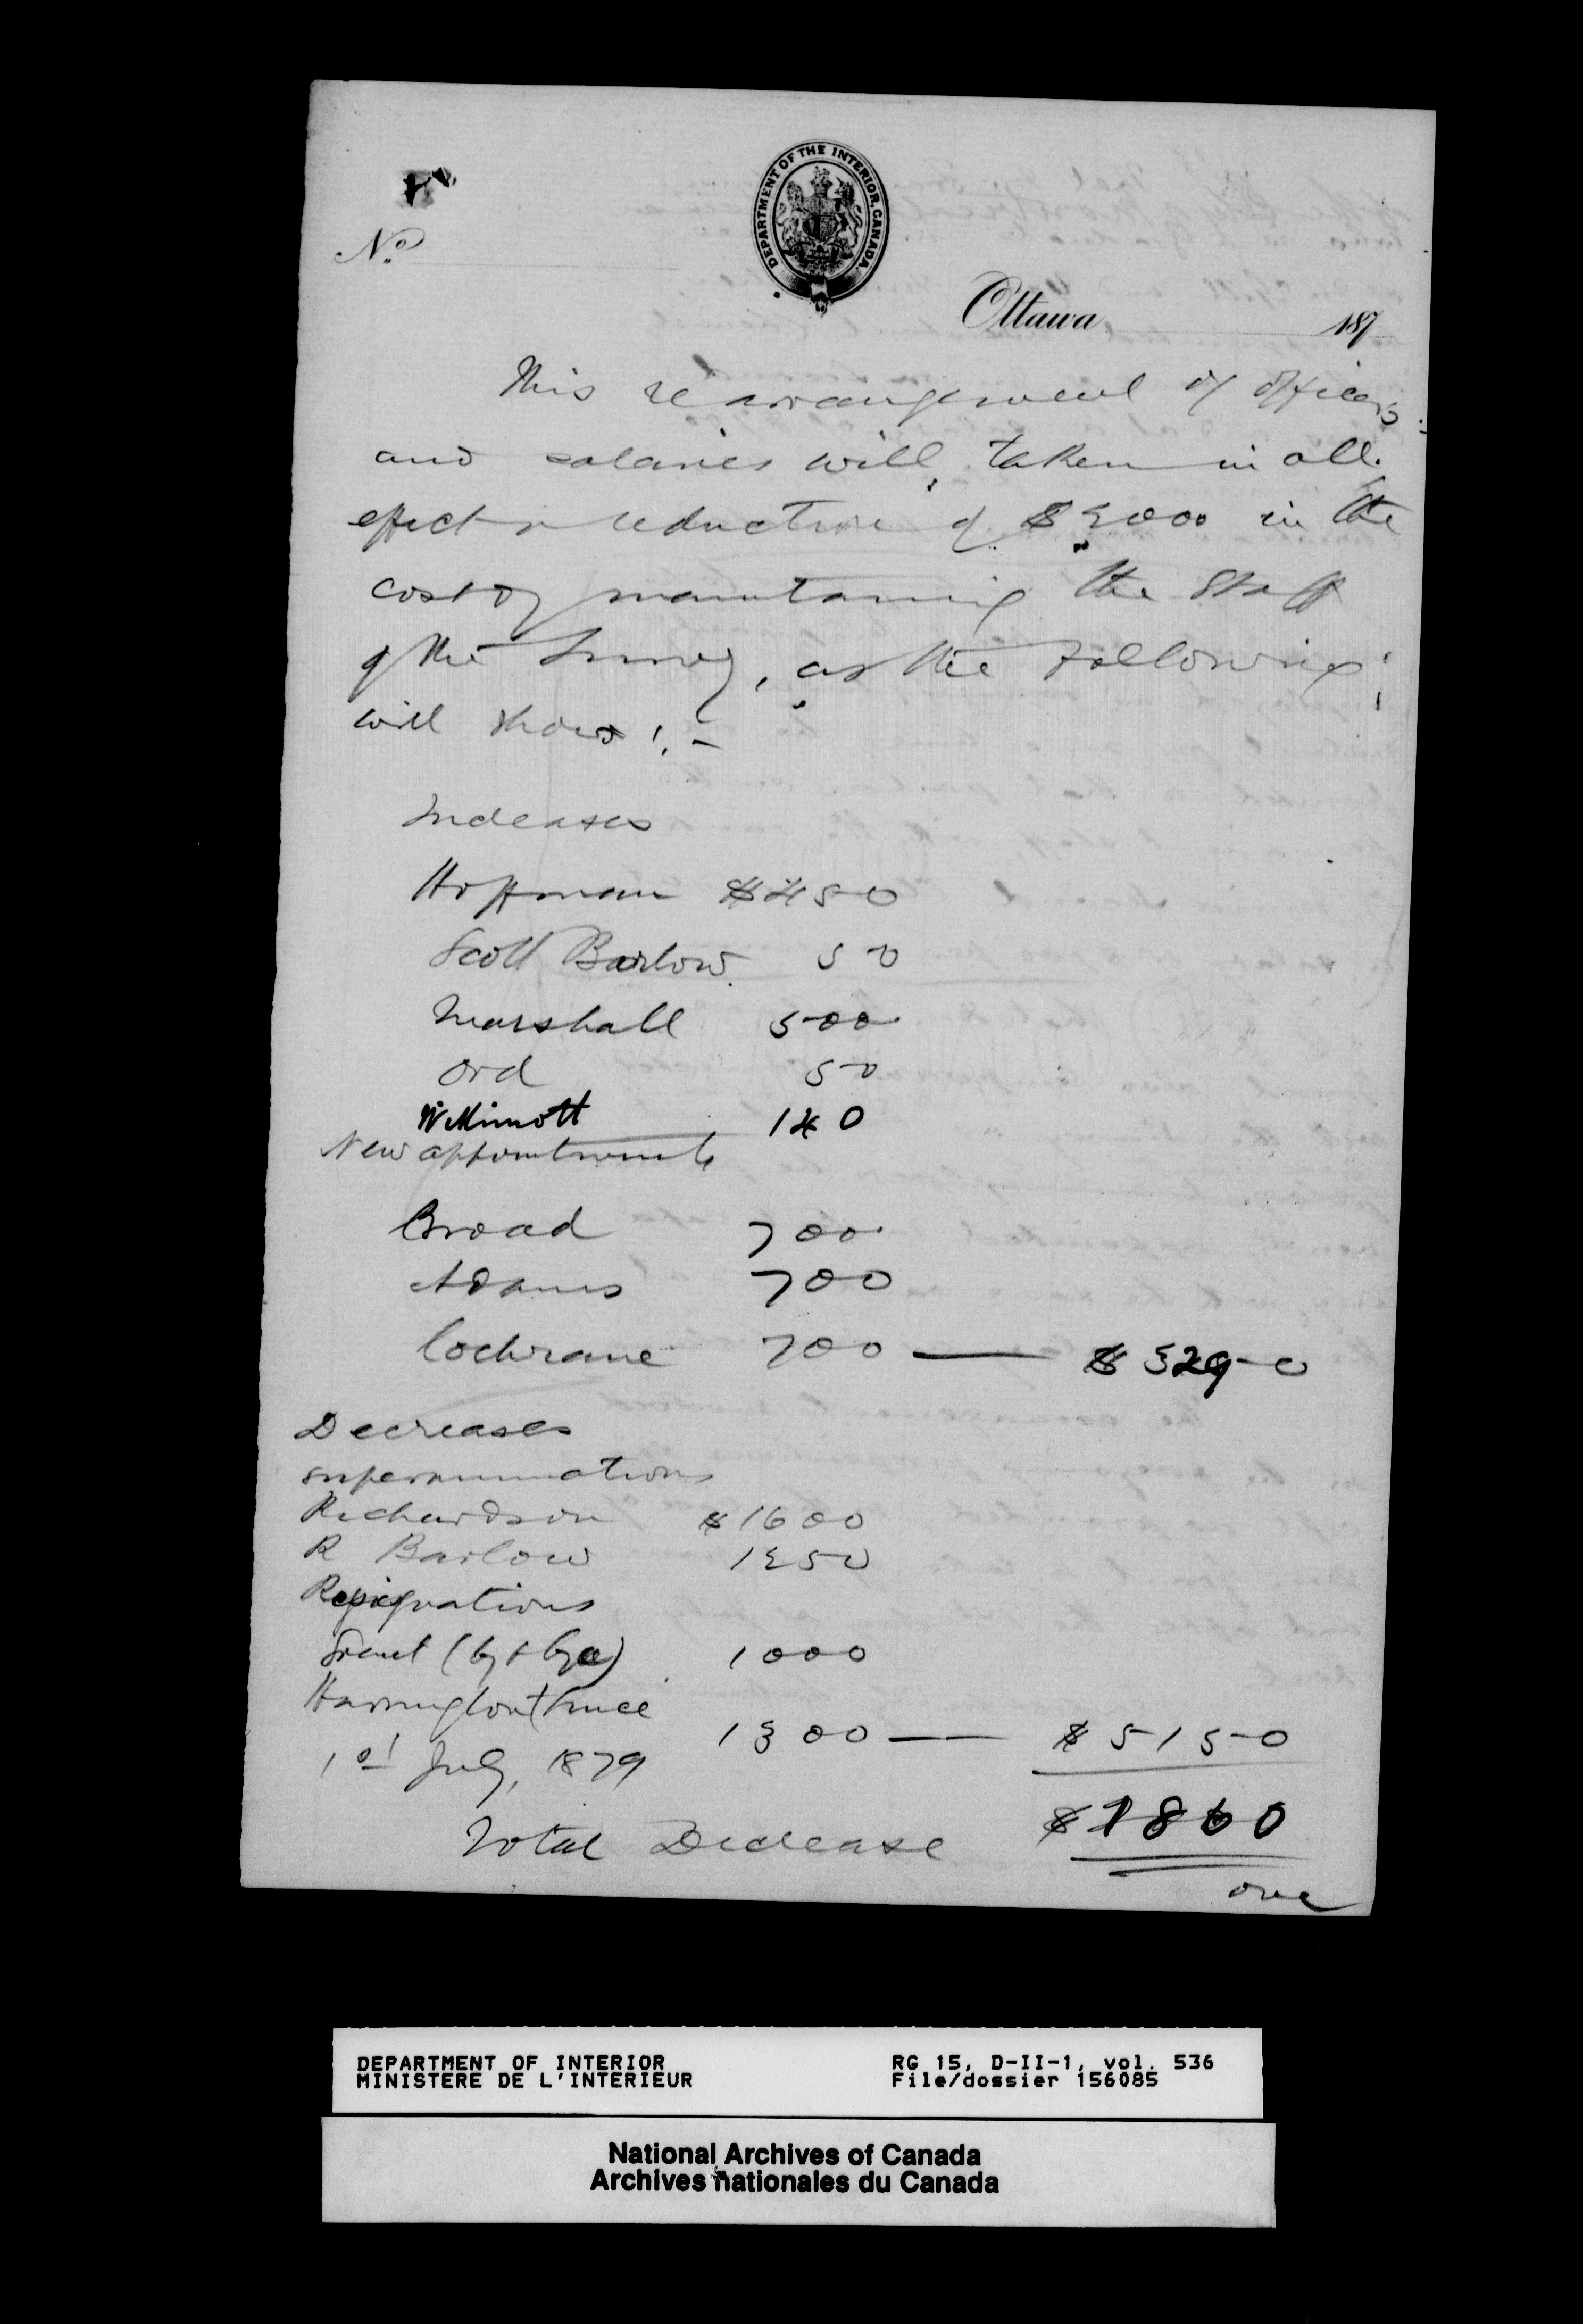 DEPARTMENT OF THE INTERIOR, CANADA.
No.
Ottawa 187
This rearrangement of officers
and salaries will, taken in all,
effect a reduction of $2000 in the
cost of maintaining the Staff
of the Survey, as the following
will show:-
Increases
Hoffman $450
Scott Barlow 50
Marshall 500
Ord 50
Willimott 140
New appointments
Broad 700
Adams 700
Cochrane 700 — $3290
Decreases
superannuations
Richardson $1600
R Barlow 1250
Resignations
Grant (by & bye) 1000
Harrington (since
1st July, 1879 1300 — $5150
Total Decrease $1860
over
DEPARTMENT OF INTERIOR
MINISTERE DE L'INTERIEUR
RG 15, D-II-1, vol. 536
File/dossier 156085
National Archives of Canada
Archives nationales du Canada